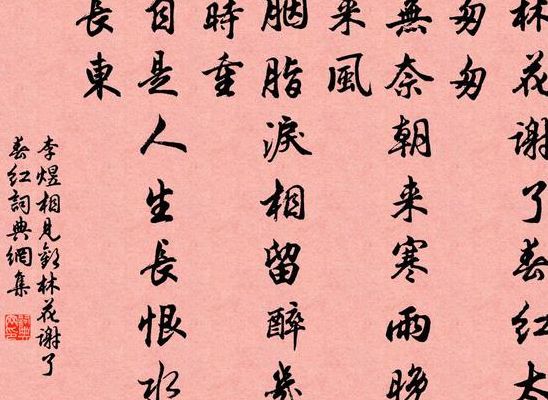 林花谢了春红太
匆匆
無奈朝来寒雨晚
来風
胭脂淚相留醉幾
時重
自是人生長恨水
長東
李煜相見歡林花谢了
春红詞典網集